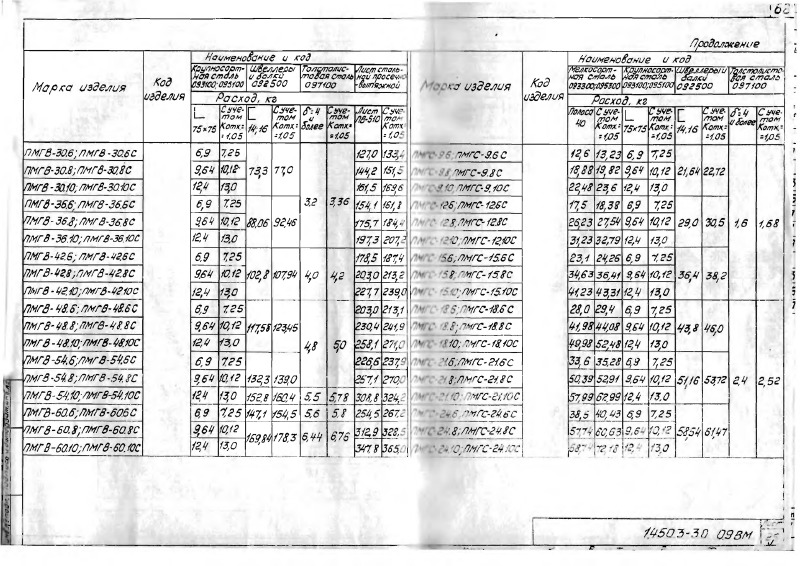 168
Продолжение
Марка изделия
Код изделия
Наименование и код
Крупносорт-ная сталь 093100; 095100
Швеллеры и балки 092500
Толстолис-товая сталь 097100
Лист сталь-ной просечно-вытяжной
Расход, кг
∟ 75×75
С уче-том Kотх.=1,05
[ 14; 16
С учетом Kотх.=1,05
δ=4 и более
С уче-том Kотх.=1,05
Лист ПВ-510
С уче-том Kотх.=1,05
ПМГВ-30.6; ПМГВ-30.6С 6,9 7,25 73,3 77,0 3,2 3,36 127,0 133,4
ПМГВ-30.8; ПМГВ-30.8С 9,64 10,12 144,2 151,5
ПМГВ-30.10; ПМГВ-30.10С 12,4 13,0 161,5 169,6
ПМГВ-36.6; ПМГВ-36.6С 6,9 7,25 88,06 92,46 154,1 161,8
ПМГВ-36.8; ПМГВ-36.8С 9,64 10,12 175,7 184,4
ПМГВ-36.10; ПМГВ-36.10С 12,4 13,0 197,3 207,2
ПМГВ-42.6; ПМГВ-42.6С 6,9 7,25 102,8 107,94 4,0 4,2 178,5 187,4
ПМГВ-42.8; ПМГВ-42.8С 9,64 10,12 203,0 213,2
ПМГВ-42.10; ПМГВ-42.10С 12,4 13,0 227,7 239,0
ПМГВ-48.6; ПМГВ-48.6С 6,9 7,25 117,58 123,45 4,8 5,0 203,0 213,1
ПМГВ-48.8; ПМГВ-48.8С 9,64 10,12 230,4 241,9
ПМГВ-48.10; ПМГВ-48.10С 12,4 13,0 258,1 271,0
ПМГВ-54.6; ПМГВ-54.6С 6,9 7,25 132,3 139,0 226,6 237,9
ПМГВ-54.8; ПМГВ-54.8С 9,64 10,12 257,1 270,0
ПМГВ-54.10; ПМГВ-54.10С 12,4 13,0 152,8 160,4 5,5 5,78 308,8 324,2
ПМГВ-60.6; ПМГВ-60.6С 6,9 7,25 147,1 154,5 5,6 5,8 254,5 267,2
ПМГВ-60.8; ПМГВ-60.8С 9,64 10,12 169,84 178,3 6,44 6,76 312,9 328,5
ПМГВ-60.10; ПМГВ-60.10С 12,4 13,0 347,8 365,0
Марка изделия
Код изделия
Наименование и код
Мелкосорт-ная сталь 093300; 095300
Крупносорт-ная сталь 093100; 095100
Швеллеры и балки 092500
Толстолисто-вая сталь 097100
Расход, кг
Полоса 40
С уче-том Kотх.=1,05
∟ 75×75
С уче-том Kотх.=1,05
[ 14; 16
С уче-том Kотх.=1,05
δ=4 и более
С уче-том Kотх.=1,05
ПМГС-9.6; ПМГС-9.6С 12,6 13,23 6,9 7,25 21,64 22,72 1,6 1,68
ПМГС-9.8; ПМГС-9.8С 18,88 19,82 9,64 10,12
ПМГС-9.10; ПМГС-9.10С 22,48 23,6 12,4 13,0
ПМГС-12.6; ПМГС-12.6С 17,5 18,38 6,9 7,25 29,0 30,5
ПМГС-12.8; ПМГС-12.8С 26,23 27,54 9,64 10,12
ПМГС-12.10; ПМГС-12.10С 31,23 32,79 12,4 13,0
ПМГС-15.6; ПМГС-15.6С 23,1 24,26 6,9 7,25 36,4 38,2
ПМГС-15.8; ПМГС-15.8С 34,63 36,41 9,64 10,12
ПМГС-15.10; ПМГС-15.10С 41,23 43,31 12,4 13,0
ПМГС-18.6; ПМГС-18.6С 28,0 29,4 6,9 7,25 43,8 46,0 2,4 2,52
ПМГС-18.8; ПМГС-18.8С 41,98 44,08 9,64 10,12
ПМГС-18.10; ПМГС-18.10С 49,98 52,48 12,4 13,0
ПМГС-21.6; ПМГС-21.6С 33,6 35,28 6,9 7,25 51,16 53,72
ПМГС-21.8; ПМГС-21.8С 50,39 52,91 9,64 10,12
ПМГС-21.10; ПМГС-21.10С 57,99 62,99 12,4 13,0
ПМГС-24.6; ПМГС-24.6С 38,5 40,43 6,9 7,25 58,54 61,47
ПМГС-24.8; ПМГС-24.8С 57,74 60,63 9,64 10,12
ПМГС-24.10; ПМГС-24.10С 68,74 72,18 12,4 13,0
1.450.3-3.0 09ВМ